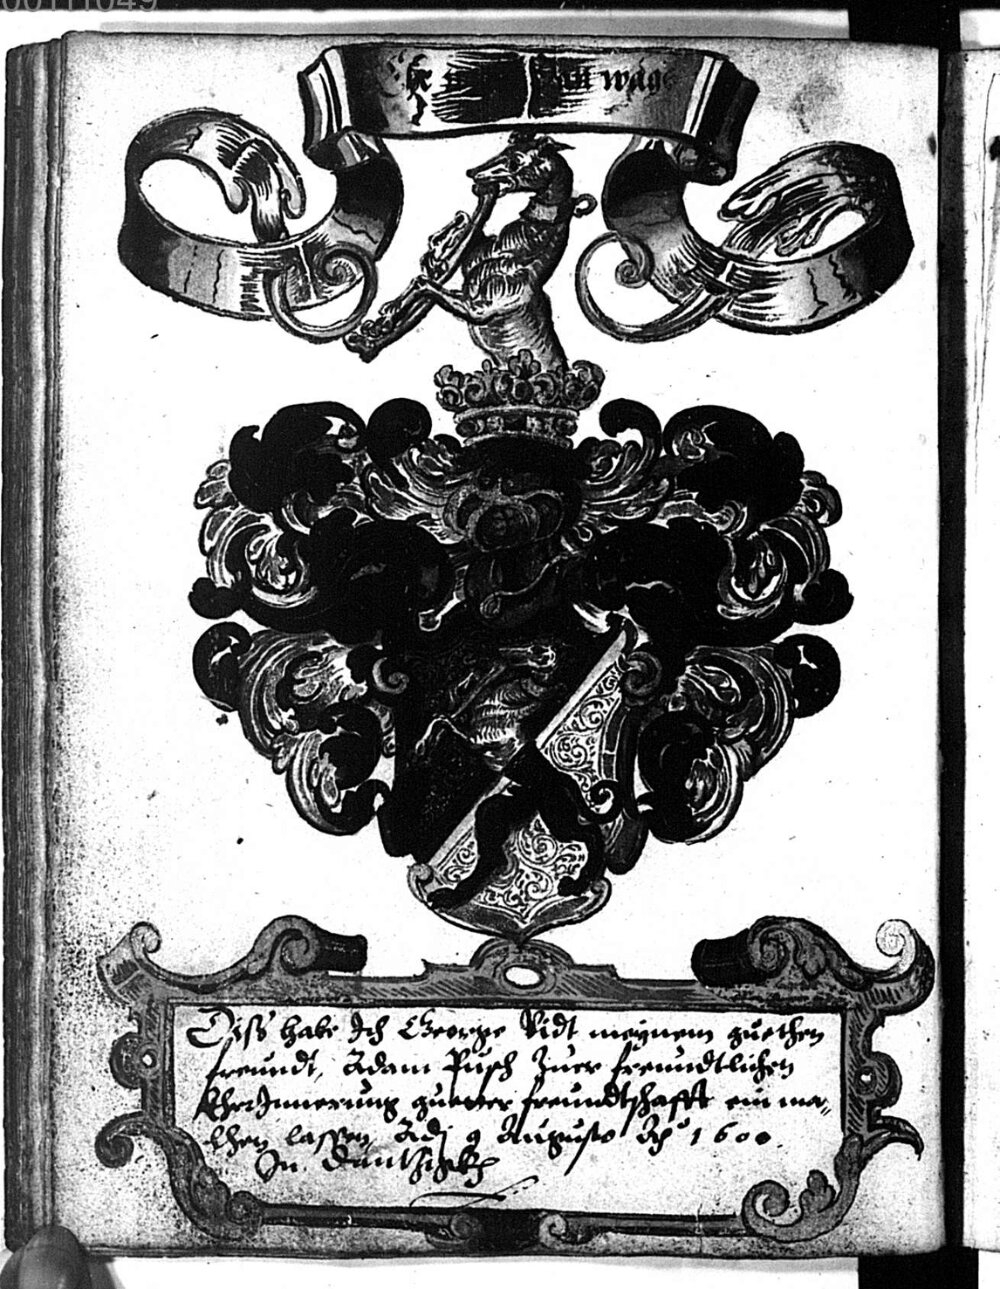 00111049
wags
Diss habe Ich George Vidt meynem guethen
freundt, Adam Pusch Zuer freundtlichen
Eher Innerung gueter freundtschafft ein ma„
lhen lassen Adj 9 Augusto Aº 1600.
In Dantzigkh